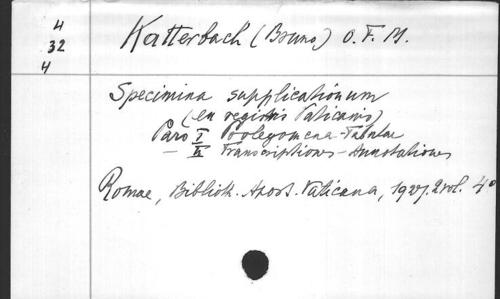 4
32
4
Katterbach (Bruno) O. F. M.
Specimina supplicationum
(ex registris Vaticanis)
Pars I Prolegomena - Tabulae
— II Transcriptiones - Annotationes
Romae, Biblioth. Apost. Vaticana, 1927. 2 vol. 4º